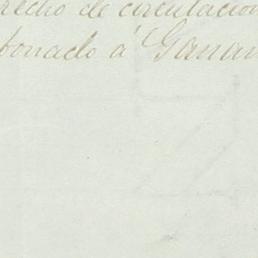 recho de circulacion
bonado á Ganan